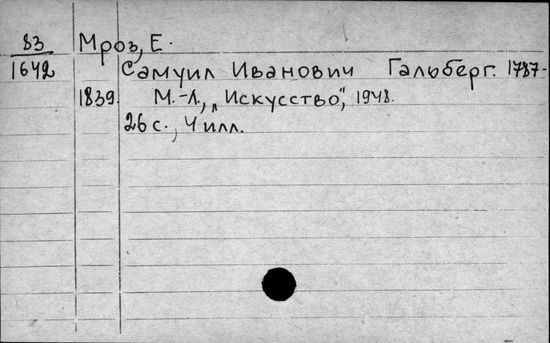 83 Мроз, Е.
1642 Самуил Иванович Гальберг. 1787-
1839. М.-Л., „Искусство", 1948.
26 с., 4 илл.